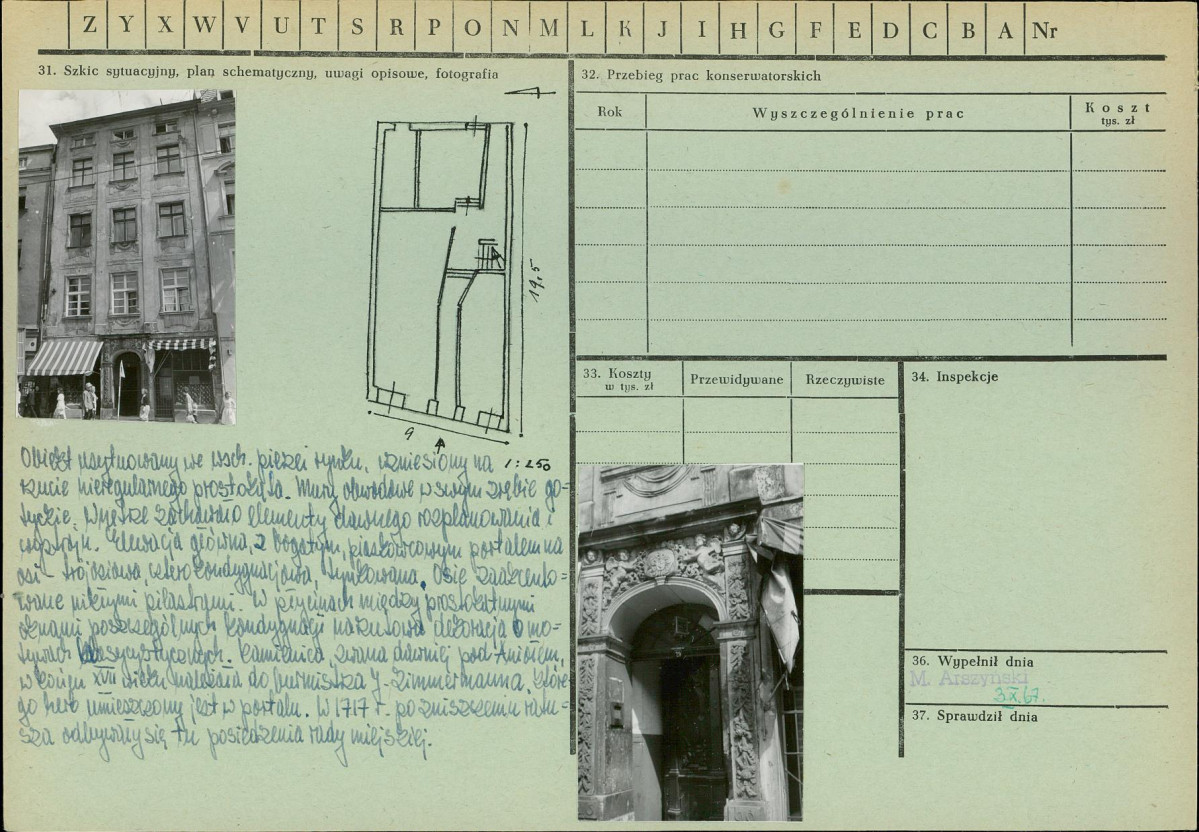 Z Y X W V U T S R P O N M L K J I H G F E D C B A Nr
31. Szkic sytuacyjny, plan schematyczny, uwagi opisowe, fotografia
19,5
9
1:250
Obiekt usytuowany we wsch. pierzei rynku, wzniesiony na
rzucie nieregularnego prostokąta. Mury obwodowe w swym zrębie go-
tyckie. Wnętrze zachowało elementy dawnego rozplanowania i
Elewacja główna, z bogatym, piaskowcowym portalem na
osi - trójosiowa, czterokondygnacjowa, tynkowana. Osie zaakcento-
wane nikłymi pilastrami. W płycinach między prostokątnymi
oknami poszczególnych kondygnacji narzutowa dekoracja o mo-
tywach klasycystycznych. Kamienica, zwana dawniej pod Aniołem,
w końcu XVII wieku należała do burmistrza J. Zimmermanna, które-
go herb umieszczony jest w portalu. W 1717 r. po zniszczeniu ratu-
sza odbywały się tu posiedzenia rady miejskiej.
32. Przebieg prac konserwatorskich
Rok Wyszczególnienie prac Koszt
tys. zł
33. Koszty
w tys. zł
Przewidywane Rzeczywiste
34. Inspekcje
36. Wypełnił dnia
M. Arszyński
3 X 67.
37. Sprawdził dnia